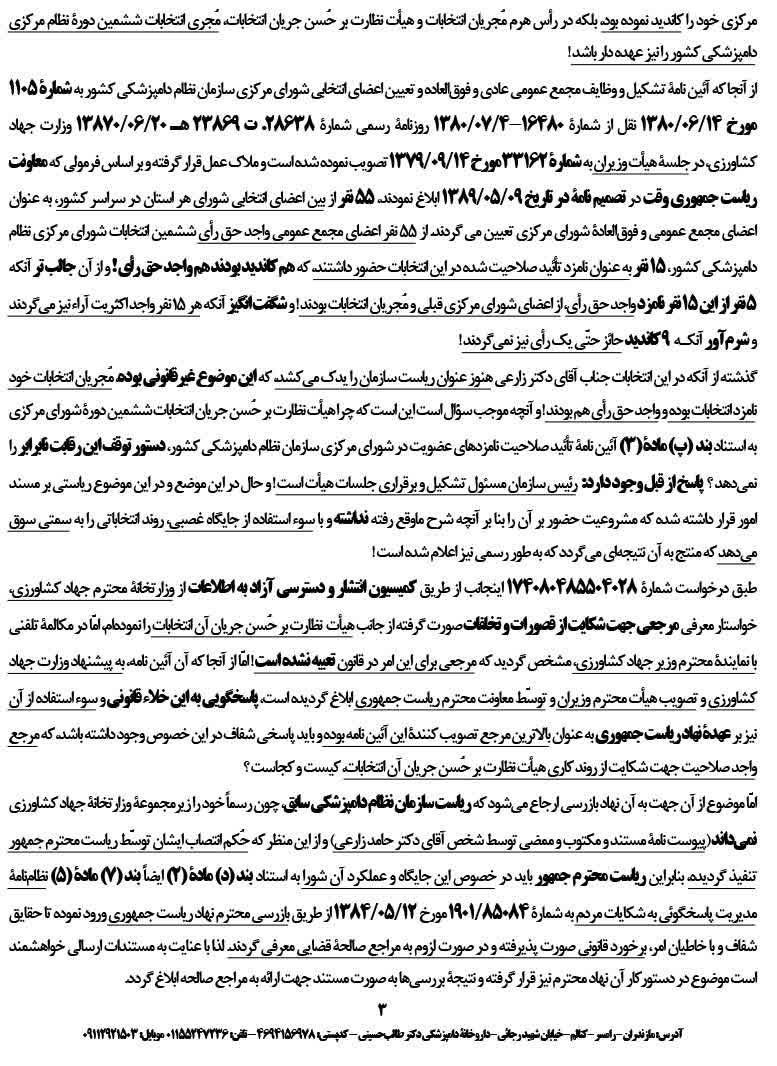 مرکزی خود را کاندید نموده بود، بلکه در رأس هرم مُجریان انتخابات و هیأت نظارت بر حُسن جریان انتخابات، مُجری انتخابات ششمین دورۀ نظام مرکزی
دامپزشکی کشور را نیز عهده دار باشد!
از آنجا که آئین نامۀ تشکیل و وظایف مجمع عمومی عادی و فوق‌العاده و تعیین اعضای انتخابی شورای مرکزی سازمان نظام دامپزشکی کشور به شمارۀ ۱۱۰۵
مورخ ۱۳۸۰/۰۶/۱۴ نقل از شمارۀ ۱۶۴۸۰–۱۳۸۰/۰۷/۴ روزنامۀ رسمی شمارۀ ۲۸۶۳۸. ت ۲۳۸۶۹ هـ ۱۳۸۷۰/۰۶/۲۰ وزارت جهاد
کشاورزی، در جلسۀ هیأت وزیران به شمارۀ ۳۳۱۶۲ مورخ ۱۳۷۹/۰۹/۱۴ تصویب نموده شده است و ملاک عمل قرار گرفته و بر اساس فرمولی که معاونت
ریاست جمهوری وقت در تصمیم نامۀ در تاریخ ۱۳۸۹/۰۵/۰۹ ابلاغ نمودند، ۵۵ نفر از بین اعضای انتخابی شورای هر استان در سراسر کشور، به عنوان
اعضای مجمع عمومی و فوق‌العادۀ شورای مرکزی تعیین می گردند. از ۵۵ نفر اعضای مجمع عمومی واجد حق رأی ششمین انتخابات شورای مرکزی نظام
دامپزشکی کشور، ۱۵ نفر به عنوان نامزد تأئید صلاحیت شده در این انتخابات حضور داشتند، که هم کاندید بودند هم واجد حق رأی! و از آن جالب تر آنکه
۵ نفر از این ۱۵ نفر نامزد واجد حق رأی، از اعضای شورای مرکزی قبلی و مُجریان انتخابات بودند! و شگفت‌انگیز آنکه هر ۱۵ نفر واجد اکثریت آراء نیز می گردند
و شرم‌آور آنکـه ۹ کاندید حائز حتّی یک رأی نیز نمی‌گردند!
گذشته از آنکه در این انتخابات جناب آقای دکتر زارعی هنوز عنوان ریاست سازمان را یدک می‌کشد، که این موضوع غیرقانونی بوده، مُجریان انتخابات خود
نامزد انتخابات بوده و واجد حق رأی هم بودند! و آنچه موجب سؤال است این است که چرا هیأت نظارت بر حُسن جریان انتخابات ششمین دورۀ شورای مرکزی
به استناد بند (پ) مادۀ (۳) آئین نامۀ تأئید صلاحیت نامزدهای عضویت در شورای مرکزی سازمان نظام دامپزشکی کشور، دستور توقف این رقابت نابرابر را
نمی‌دهد؟ پاسخ از قبل وجود دارد: رئیس سازمان مسئول تشکیل و برقراری جلسات هیأت است! و حال در این موضع و در این موضوع ریاستی بر مسند
امور قرار داشته شده که مشروعیت حضور بر آن را بنا بر آنچه شرح ماوقع رفته نداشته و با سوء استفاده از جایگاه غصبی، روند انتخاباتی را به سمتی سوق
می‌دهد که منتج به آن نتیجه‌ای می‌گردد که به طور رسمی نیز اعلام شده است!
طبق درخواست شمارۀ ۱۷۴۰۸۰۴۸۵۵۰۴۰۲۸ اینجانب از طریق کمیسیون انتشار و دسترسی آزاد به اطلاعات از وزارتخانۀ محترم جهاد کشاورزی،
خواستار معرفی مرجعی جهت شکایت از قصورات و تخلفات صورت گرفته از جانب هیأت نظارت بر حُسن جریان آن انتخابات را نموده‌ام، امّا در مکالمۀ تلفنی
با نمایندۀ محترم وزیر جهاد کشاورزی، مشخص گردید که مرجعی برای این امر در قانون تعبیه نشده است! امّا از آنجا که آن آئین نامه، به پیشنهاد وزارت جهاد
کشاورزی و تصویب هیأت محترم وزیران و توسّط معاونت محترم ریاست جمهوری ابلاغ گردیده است، پاسخگویی به این خلاء قانونی و سوء استفاده از آن
نیز بر عهدۀ نهاد ریاست جمهوری به عنوان بالاترین مرجع تصویب کنندۀ این آئین نامه بوده و باید پاسخی شفاف در این خصوص وجود داشته باشد، که مرجع
واجد صلاحیت جهت شکایت از روند کاری هیأت نظارت بر حُسن جریان آن انتخابات، کیست و کجاست؟
امّا موضوع از آن جهت به آن نهاد بازرسی ارجاع می‌شود که ریاست سازمان نظام دامپزشکی سابق، چون رسماً خود را زیرمجموعۀ وزارتخانۀ جهاد کشاورزی
نمی‌داند (پیوست نامۀ مستند و مکتوب و ممضی توسط شخص آقای دکتر حامد زارعی) و از این منظر که حُکم انتصاب ایشان توسّط ریاست محترم جمهور
تنفیذ گردیده، بنابراین ریاست محترم جمهور باید در خصوص این جایگاه و عملکرد آن شورا به استناد بند (د) مادۀ (۲) ایضاً بند (۷) مادۀ (۵) نظام‌نامۀ
مدیریت پاسخگوئی به شکایات مردم به شمارۀ ۱۹۰۱/۸۵۰۸۴ مورخ ۱۳۸۴/۰۵/۱۲ از طریق بازرسی محترم نهاد ریاست جمهوری ورود نموده تا حقایق
شفاف و با خاطیان امر، برخورد قانونی صورت پذیرفته و در صورت لزوم به مراجع صالحۀ قضایی معرفی گردند. لذا با عنایت به مستندات ارسالی خواهشمند
است موضوع در دستور کار آن نهاد محترم نیز قرار گرفته و نتیجۀ بررسی‌ها به صورت مستند جهت ارائه به مراجع صالحه ابلاغ گردد.
۳
آدرس: مازندران – رامسر – کتالم – خیابان شهید رجائی – داروخانۀ دامپزشکی دکتر طالب حسینی – کدپستی: ۴۶۹۴۱۵۶۹۷۸ – تلفن: ۰۱۱۵۵۲۴۷۲۳۶ موبایل: ۰۹۱۱۲۹۲۱۵۰۳